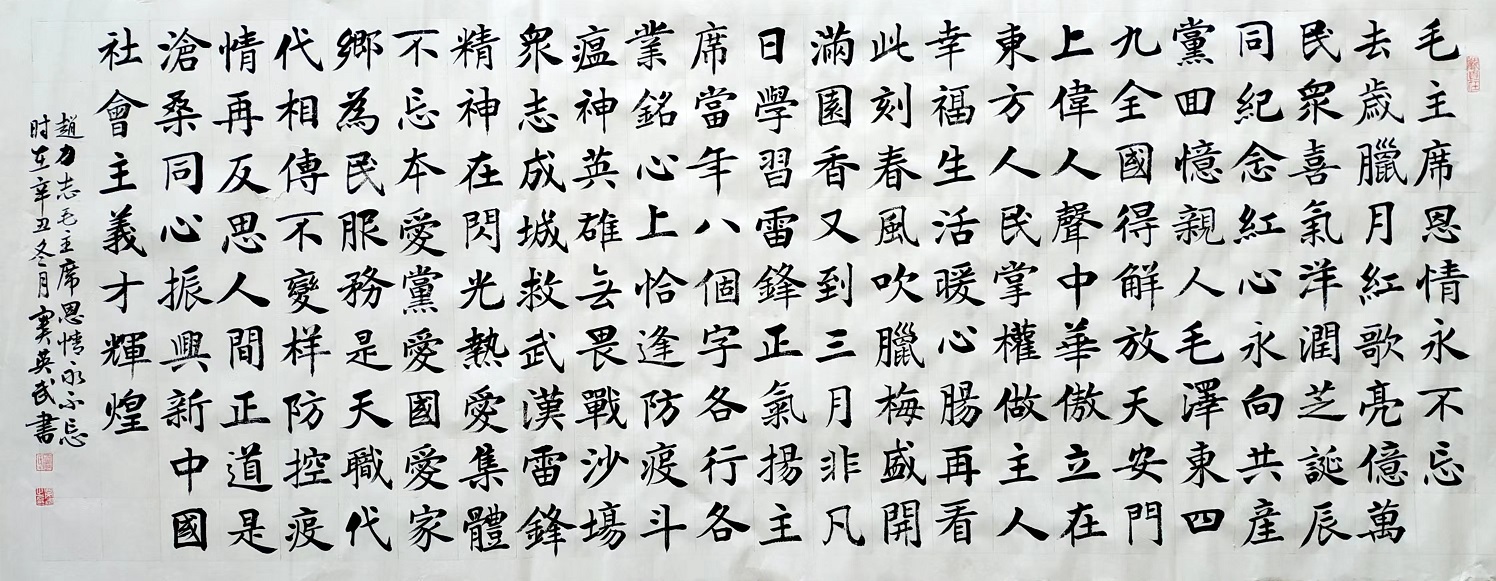 毛主席恩情永不忘
去歲臘月紅歌亮億萬
民眾喜氣洋潤芝誕辰
同紀念紅心永向共產
黨囬憶親人毛澤東四
九全國得解放天安門
上偉人聲中華傲立在
東方人民掌權做主人
幸福生活暖心腸再看
此刻春風吹臘梅盛開
滿園香又到三月非凡
日學習雷鋒正氣揚主
席當年八個字各行各
業銘心上恰逢防疫斗
瘟神英雄無畏戰沙場
眾志成城救武漢雷鋒
精神在閃光熱愛集體
不忘本愛黨愛國愛家
鄉為民服務是天職代
代相傳不變样防控疫
情再反思人間正道是
滄桑同心振興新中國
社會主義才輝煌
趙力志毛主席恩情永不忘
时在辛丑冬月窦英武書